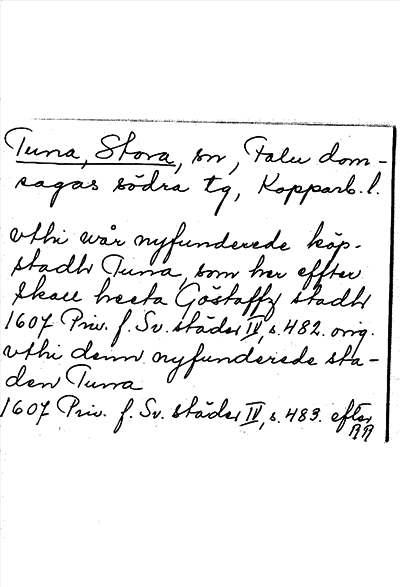 Tuna, Stora, sn, Falu dom-
sagas södra tg, Kopparb. l.
vthi wår nyfunderede köp-
stadh Tuna, som her effter
skall heeta Göstaffz stadh
1607 Priv. f. Sv. städer IV, s. 482. orig.
vthi denn nyfunderede sta-
den Tuna
1607 Priv. f. Sv. städer IV, s. 483. efter
RR